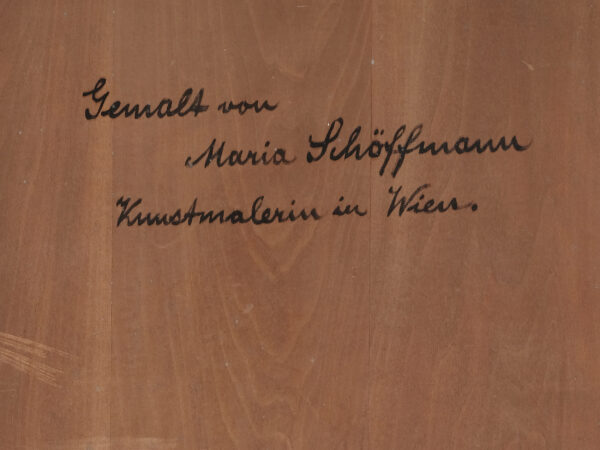 Gemalt von
Maria Schöffmann
Kunstmalerin in Wien.